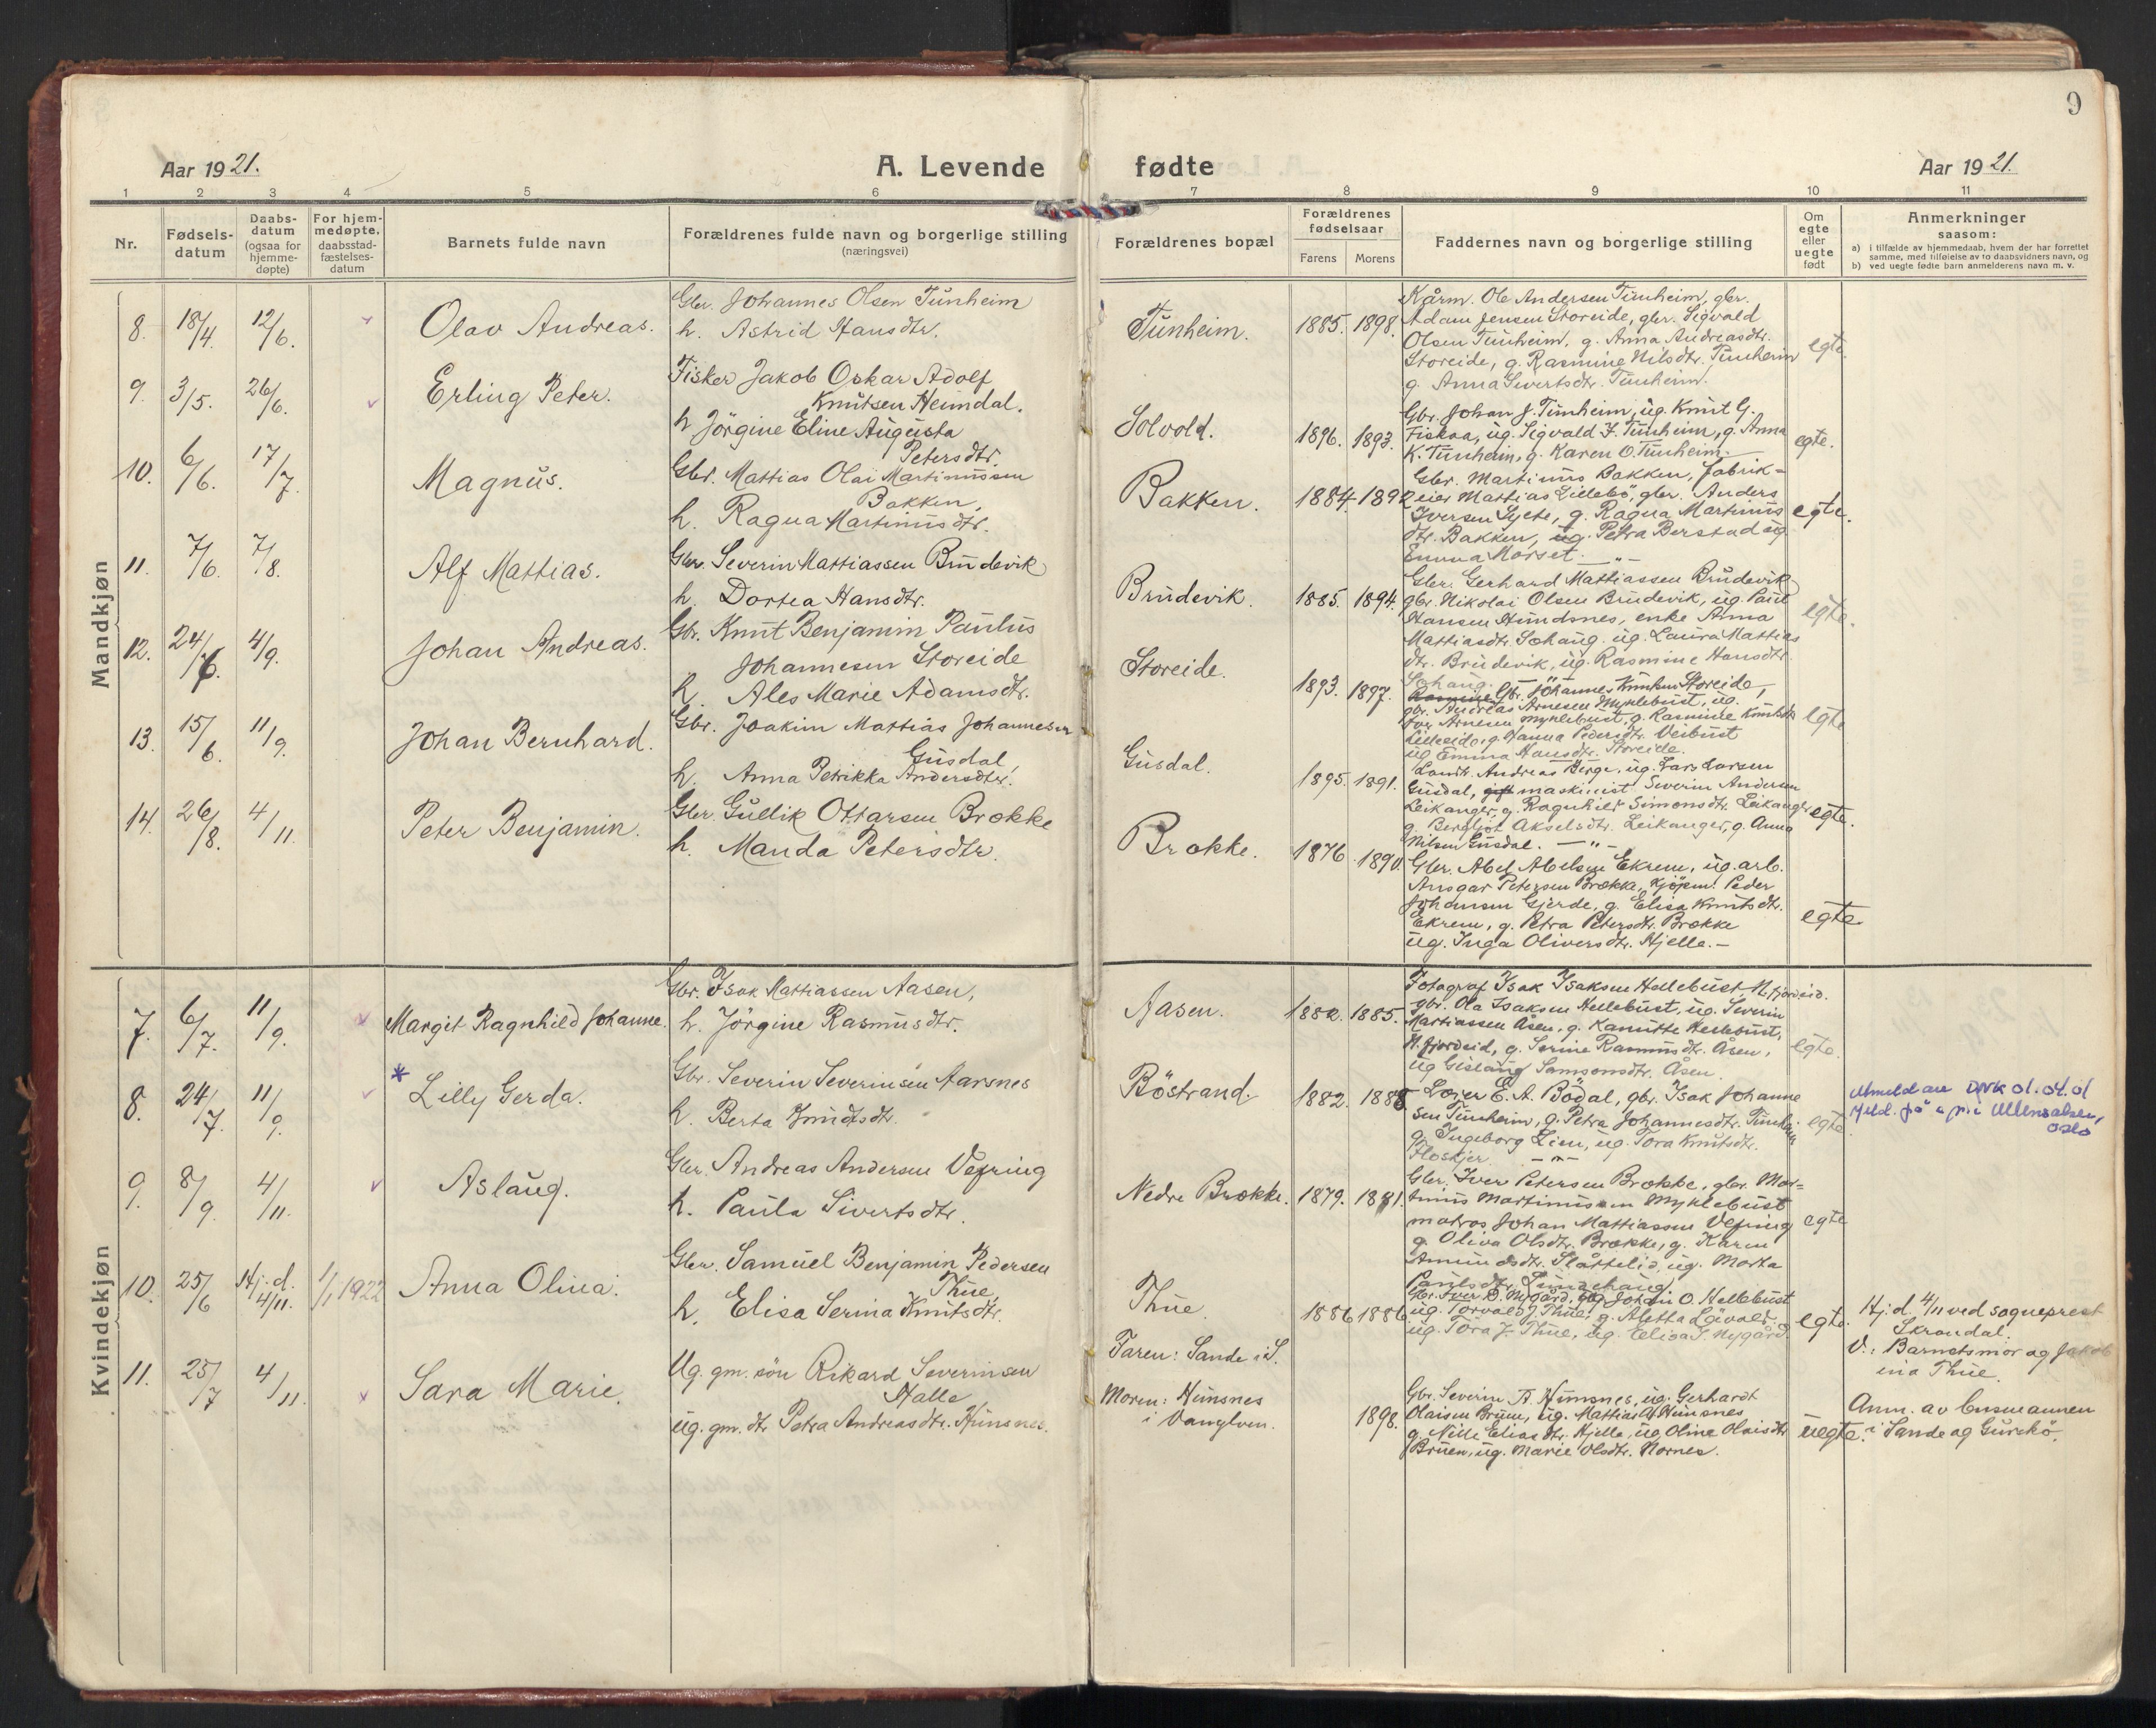 9
Aar 1921.
A. Levende fødte
Aar 1921.
1 2 3 4 5 6 7 8 9 10 11
Nr.
Fødsels-
datum
Daabs-
datum
(ogsaa for
hjemme-
døpte)
For hjem-
medøpte.
daabsstad-
fæstelses-
datum
Barnets fulde navn
Forældrenes fulde navn og borgerlige stilling
(næringsvei)
Forældrenes bopæl
Forældrenes
fødselsaar
Farens Morens
Faddernes navn og borgerlige stilling
Om
egte
eller
uegte
født
Anmerkninger
saasom:
a) i tilfælde av hjemmedaab, hvem der har forrettet
samme, med tilføielse av to daabsvidners navn, og
b) ved uegte fødte barn anmelderens navn m. v.
Mandkjøn
8. 18/4. 12/6. Olav Andreas.
Gbr. Johannes Olsen Tunheim
h. Astrid Hansdtr.
Tunheim. 1885. 1898.
Kårm. Ole Andersen Tunheim, gbr.
Adam Jensen Storeide, gbr. Sigvald
Olsen Tunheim, g. Anna Andreasdtr.
Storeide, g. Rasmine Nilsdtr. Tunheim
g. Anna Sivertsdtr. Tunheim.
egte
9. 3/5. 26/6. Erling Peter.
Fisker Jakob Oskar Adolf
Knutsen Heimdal.
h Jörgine Eline Augusta
Petersdtr.
Solvold. 1896. 1893.
Gbr. Johan J. Tunheim, ug. Knut G.
Fiskaa, ug. Sigvald J. Tunheim, g. Anna
K. Tunheim, g. Karen O. Tunheim.
egte.
10. 6/6. 17/7. Magnus.
Gbr. Mattias Olai Martinussen
Bakken,
h. Ragna Martinusdtr.
Bakken. 1884. 1892
Gbr. Martinus Bakken, fabrik-
eier Mattias Lillebö, gbr. Anders
Iversen Sylte, g. Ragna Martinus
dtr. Bakken, ug. Petra Berstad ug
Emma Morset.
egte.
11. 7/6. 7/8. Alf Mattias.
Gbr. Severin Mattiassen Brudevik
h. Dortea Hansdtr.
Brudevik. 1885. 1894.
Gbr. Gerhard Mattiassen Brudevik
gbr. Nikolai Olsen Brudevik, ug. Paul
Hansen Hundsnes, enke Anna
Mattiasdtr. Sohaug. ug. Laura Mattias
dtr. Brudevik, ug. Rasmine Hansdtr.
Sohaug.
egte.
12. 24/6. 4/9. Johan Andreas.
Gbr. Knut Benjamin Paulus
Johannesen Storeide
h. Ales Marie Adamsdtr.
Storeide. 1893. 1897.
Gbr. Johannes Knutsen Storeide,
gbr. Andreas Arnesen Myklebust, ug.
Arnesen Myklebust, g. Rasmine
g. Hanna Pedersdtr. Veibust
ug Emma Hansdtr. Storeide.
egte
13. 15/6. 11/9. Johan Bernhard.
Gbr. Joakim Mattias Johannesen
Gusdal,
h. Anna Petrikka Andersdtr.
Gusdal. 1895. 1891.
Landh. Andreas Berge, ug. Lars Larsen
Gusdal, maskinist Severin Andersen
Leikanger, g. Ragnhild Simonsdtr. Leikanger
g. Bergljot Akselsdtr. Leikanger, g. Anna
Nilsen Gusdal.
egte.
14. 26/8. 4/11. Peter Benjamin.
Gbr. Gullik Ottarsen Brække
h. Manda Petersdtr.
Brække. 1876. 1890.
Gbr. Abel Abelsen Ekrem, ug. arb.
Ansgar Petersen Brække, kjöpm. Peder
Johansen Gjerde, g. Elisa Knutsdtr.
Ekrem, g. Petra Petersdtr. Brække
ug. Inga Oliversdtr. Hjelle.-
egte.
Kvindekjøn
7. 6/7. 11/9. Margit Ragnhild Johanne.
Gbr. Isak Mattiassen Aasen,
h. Jörgine Rasmusdtr.
Aasen. 1882. 1885.
Fotograf Isak Isaksen Hellebust N. fjordeid.
gbr. Ola Isaksen Hellebust, ug. Severin
Martiassen Åsen, g. Kanutte Hellebust,
N. fjordeid, g. Serine Rasmusdtr. Åsen,
ug Gislaug Samsonsdtr. Åsen
egte.
8. 24/7. 11/9. * Lilly Gerda.
Gbr. Severin Severinsen Aarsnes
h. Berta Knudtsdtr.
Böstrand. 1882. 1888
Lærer E. A. Bödal, gbr. Isak Johanne
sen Tunheim, g. Petra Johannesdtr. Tunheim
g. Ingeborg Lien, ug. Tora Knutsdtr.
Floskjer.
egte.
Utmeld av DNK 01.04.01
Oslo
9. 8/9. 4/11. Aslaug.
Gbr. Andreas Andersen Vefring
h. Paula Sivertsdtr.
Nedre Brække. 1879. 1881.
Gbr. Iver Petersen Brække, gbr. Mar-
tinus Martinussen Myklebust
matros Johan Mattiassen Vefring
g. Oliva Olsdtr. Brække, g. Karen
Amundsdtr. Slåttelid, ug. Marta
Paulsdtr.
egte
10. 25/6 Hj.d. 4/11. 1/1 1922 Anna Olina.
Gbr. Samuel Benjamin Pedersen
Thue,
h. Elisa Serina Knutsdtr.
Thue 1886 1886
Gbr. Iver D. Nygård, Johan O. Hellebust
ug. Torvald J. Thue, g. Aletta Løvold,
ug. Tora J. Thue, ug. Elisa I. Nygård.
egte.
Hj. d. 4/11 ved sogneprest
Skrondal.
V.: Barnets mor og Jakob
ina Thue.
11. 25/7 4/11. Sara Marie.
Ug. gm. sön Rikard Severinsen
Halle
ug. gm. dtr Petra Andreasdtr. Hunsnes.
Faren: Sande i S.
Moren: Hunsnes
i Vanylven.
1898.
Gbr. Severin A. Hunsnes, ug. Gerhardt
Olaisen Bruen, ug. Mattias A. Hunsnes
g. Nille Eliasdtr. Hjelle, ug Oline Olaisdtr
Bruen, ug. Marie Olsdtr. Nornes.
uegte.
Anm. av lensmannen
i Sande og Gurskö.